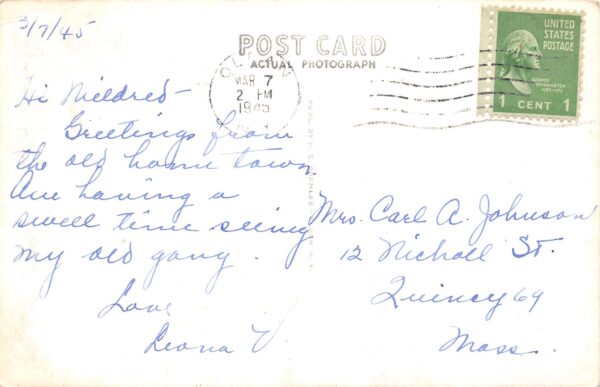 3/7/45
POST CARD
ACTUAL PHOTOGRAPH
MAR 7
2 PM
1945
UNITED
STATES
POSTAGE
GEORGE
WASHINGTON
1 CENT 1
Hi Mildred—
Greetings from
the old home town.
Am having a
swell time seeing
my old gang.
Love
Leona V
Mrs. Carl A. Johnson
12 Nicholl St.
Quincy 69
Mass.